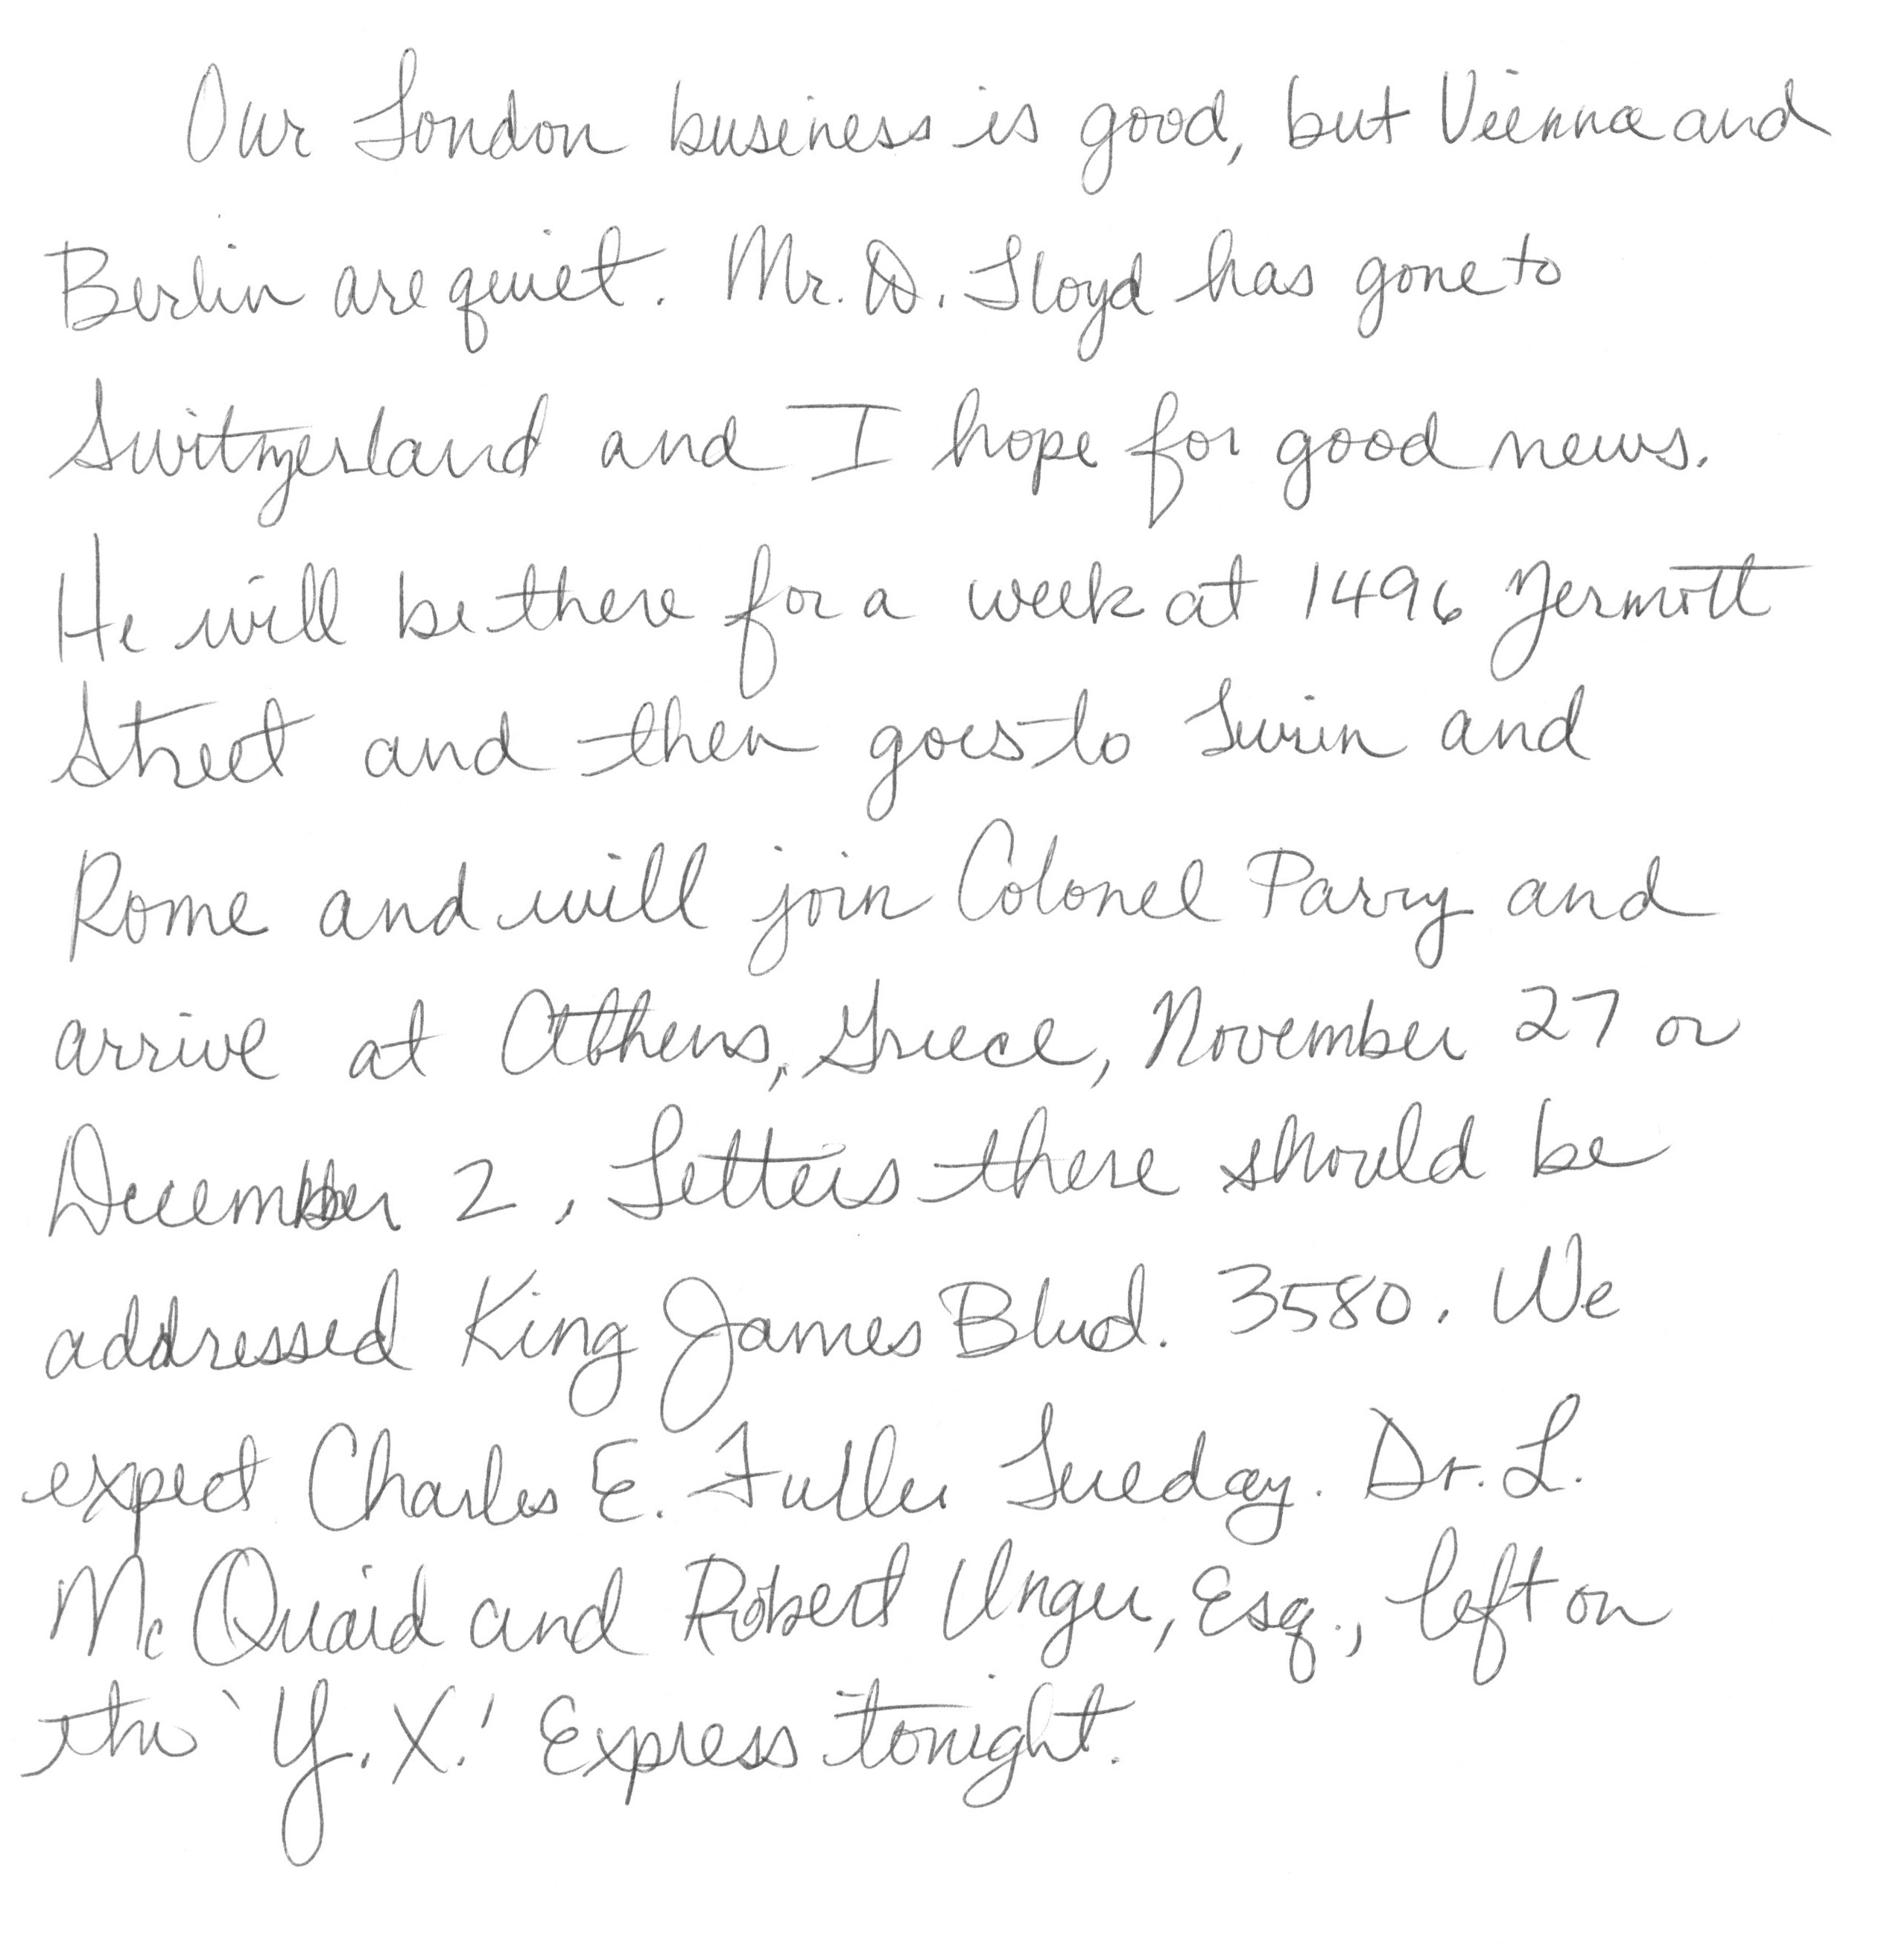 Our London business is good, but Vienna and
Berlin are quiet. Mr. D. Lloyd has gone to
Switzerland and I hope for good news.
He will be there for a week at 1496 Zermott
Street and then goes to Turin and
Rome and will join Colonel Parry and
arrive at Athens, Greece, November 27 or
December 2, Letters there should be
addressed King James Blvd. 3580. We
expect Charles E. Fuller Tueday. Dr. L.
Mc Quaid and Robert Unger, Esq., left on
the 'Y. X.' Express tonight.